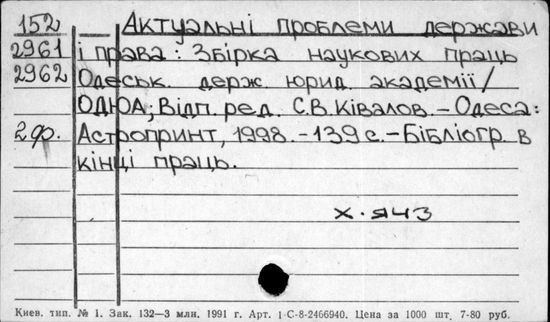 152 Актуальні проблеми держави
2961 і права: Збірка наукових праць
2962 Одеськ. держ. юрид. академії/
ОДЮА; Відп. ред. С.В. Ківалов. – Одеса:
2 ф. Астропринт, 1998. – 139 с. – Бібліогр. в
кінці праць.
х. яч3
Киев. тип. № 1. Зак. 132—3 млн. 1991 г. Арт. 1-С-8-2466940. Цена за 1000 шт. 7-80 руб.